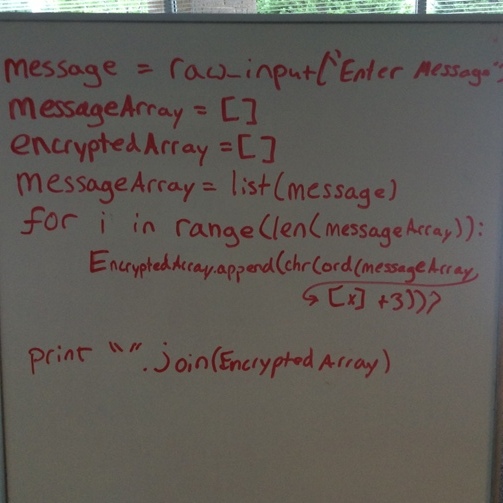 message = raw_input("Enter Message"
messageArray = []
encryptedArray = []
messageArray = list(message)
for i in range(len(messageArray)):
EncryptedArray.append(chr(ord(messageArray
↳ [x] +3)))
print "".join(EncryptedArray)